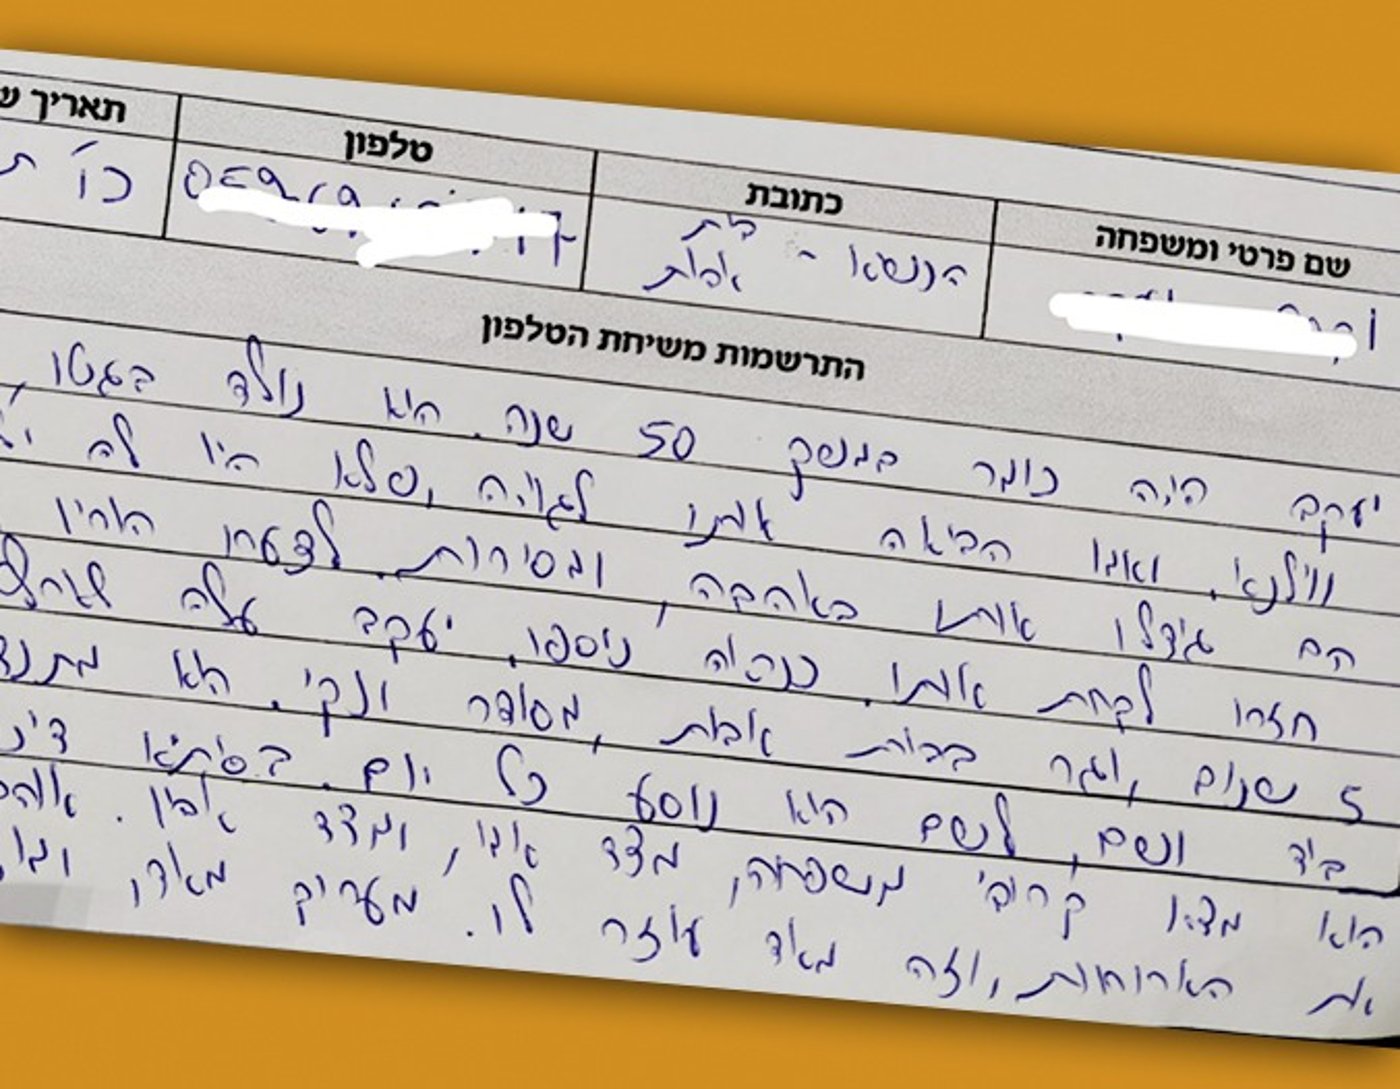 שם פרטי ומשפחה כתובת טלפון תאריך
הנשיא - בית
אבות
כו'
התרשמות משיחת הטלפון
יעקב היה כומר במשך 50 שנה. היא נולד בגטו,
ווילנא. ואמו הביאה אותו לגויה, שלא היו לה
הם גידלו אותו באהבה, ומסירות. לצערו הוריו
חזרו לקחת אותו. כנראה ניספו. יעקב עלה
5 שנים, וגר בבית אבות, מסודר ונקי. הוא
ביד ושם, לשם הוא נוסע כל יום.
הוא מצא קרובי משפחה, מצד אמו, ומצד אביו.
את הארוחות, וזה מאוד עוזר לו. מעריך מאוד,